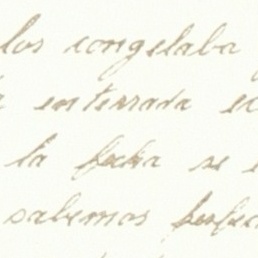 los congelaba
enterrada
la fecha se
sabemos